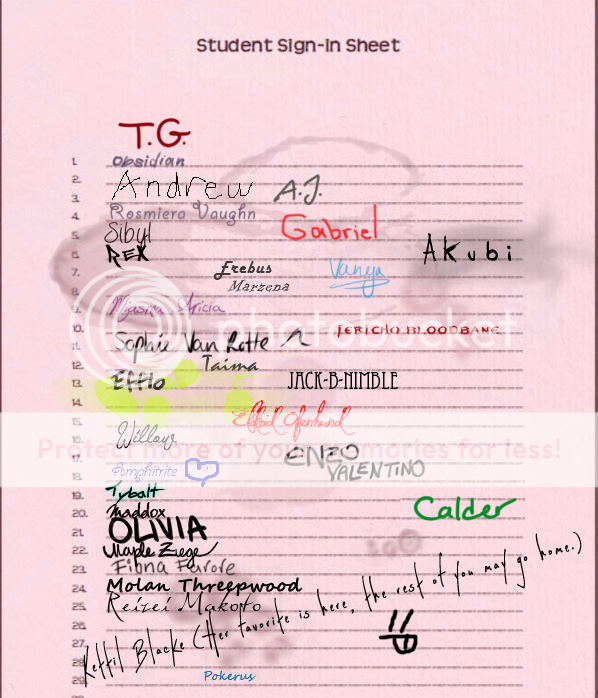 Student Sign-In Sheet
T.G.
1. Obsidian
2.
3. Andrew A.J.
4. Rosmiera Vaughn Gabriel
5. Sibyl
6. REX Akubi
7. Erebus Vanya
8. Marzena
9. Aricia
10. JERICHO BLOODBANE
11. Sophie Van Rotte
12. Taima
13. Efflo JACK-B-NIMBLE
14.
15.
16. Willow
17. Amphitrite ENZO VALENTINO
18.
19. Tybalt
20. Maddox Calder
21. OLIVIA
22. Maple Ziege
23. Fiona Furore
24. Molan Threepwood
25. Reizei Makoto
26.
27. Kettil Blacke (Her favorite is here, the rest of you may go home.)
28.
29. Pokerus
photobucket
Protect more of your memories for less!